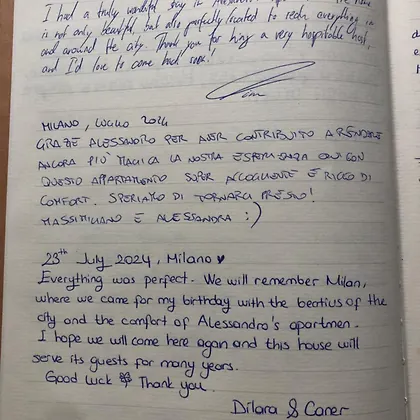 I had a truly wonderful stay in Alessandro's
is not only beautiful, but also perfectly located to reach everything in
and around the city. Thank you for being a very hospitable host,
and I'd love to come back soon!
MILANO, LUGLIO 2024
GRAZIE ALESSANDRO PER AVER CONTRIBUITO A RENDERE
ANCORA PIÙ MAGICA LA NOSTRA ESPERIENZA QUI CON
QUESTO APPARTAMENTO SUPER ACCOGLIENTE E RICCO DI
COMFORT. SPERIAMO DI TORNARCI PRESTO!
MASSIMILIANO E ALESSANDRA :)
28th July 2024, Milano ♥
Everything was perfect. We will remember Milan,
where we came for my birthday with the beatius of the
city and the comfort of Alessandro's apartmen.
I hope we will come here again and this house will
serve its guests for many years.
Good luck Thank you.
Dilara & Caner